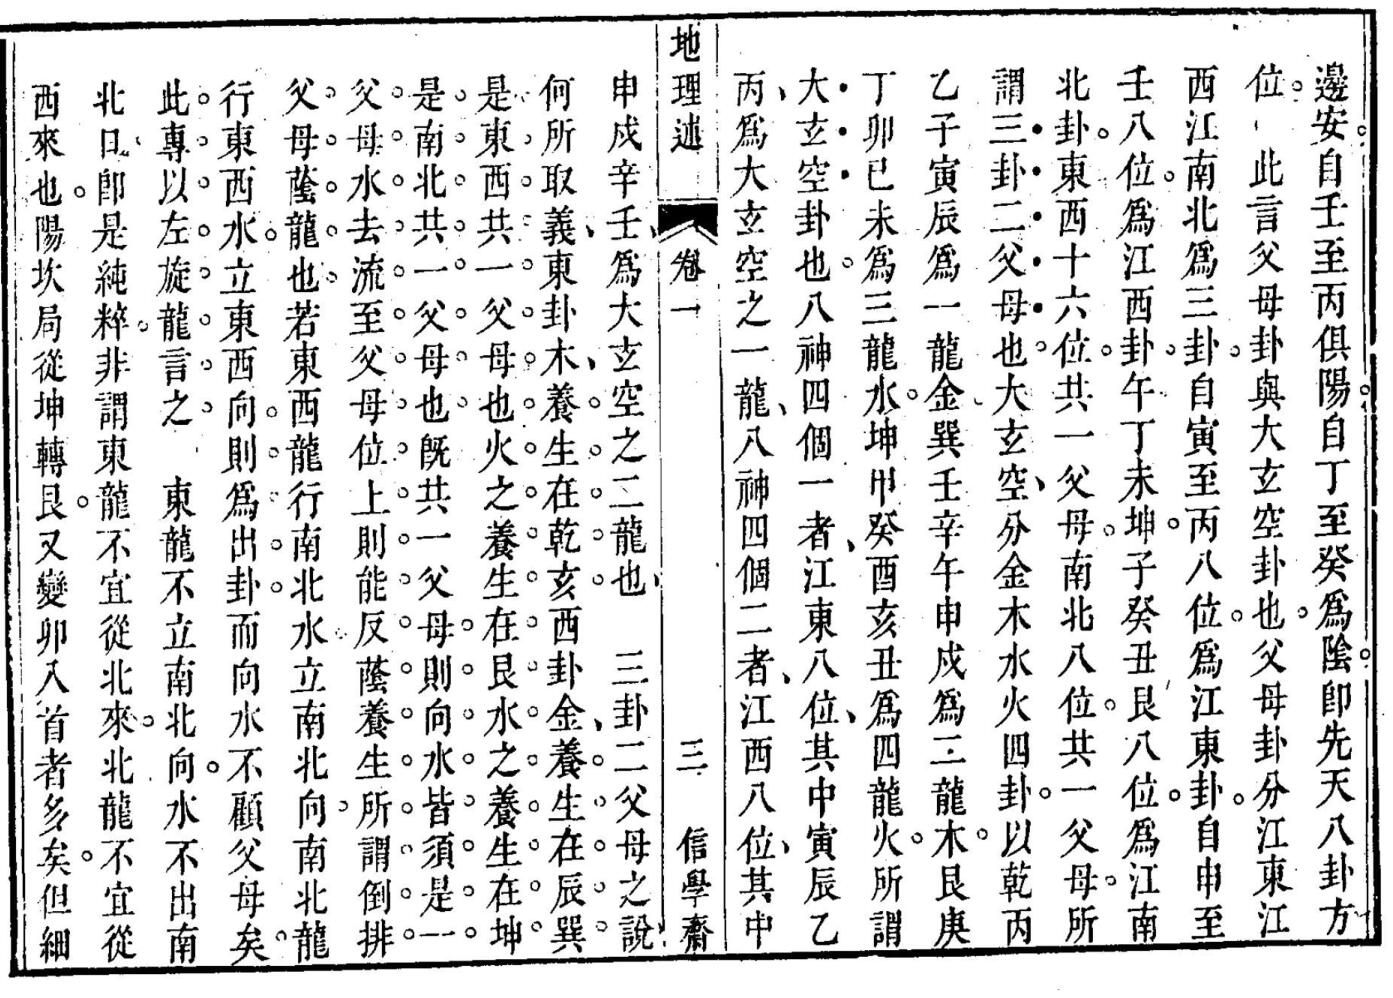 邊安自壬至丙俱陽自丁至癸爲陰卽先天八卦方
位　此言父母卦與大玄空卦也父母卦分江東江
西江南北爲三卦自寅至丙八位爲江東卦自申至
壬八位爲江西卦午丁未坤子癸丑艮八位爲江南
北卦東西十六位共一父母南北八位共一父母所
謂三卦二父母也大玄空分金木水火四卦以乾丙
乙子寅辰爲一龍金巽壬辛午申戍爲二龍木艮庚
丁卯巳未爲三龍水坤甲癸酉亥丑爲四龍火所謂
大玄空卦也八神四個一者江東八位其中寅辰乙
丙爲大玄空之一龍八神四個二者江西八位其中
地理述　卷一　三　信學齋
申戍辛壬爲大玄空之二龍也　三卦二父母之說
何所取義東卦木養生在乾亥西卦金養生在辰巽
是東西共一父母也火之養生在艮水之養生在坤
是南北共一父母也旣共一父母則向水皆須是一
父母水去流至父母位上則能反蔭養生所謂倒排
父母蔭龍也若東西龍行南北水立南北向南北龍
行東西水立東西向則爲出卦而向水不顧父母矣
此專以左旋龍言之　東龍不立南北向水不出南
北日卽是純粹非謂東龍不宜從北來北龍不宜從
西來也陽坎局從坤轉艮又變卯入首者多矣但細